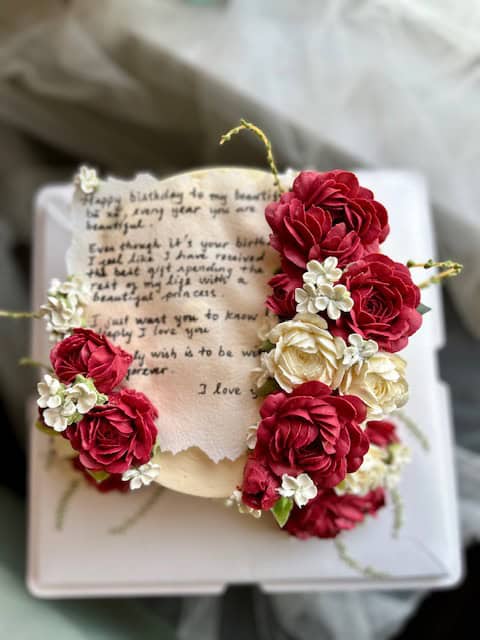 Happy birthday to my beautif
every year you are
beautiful.
Even though it's your birth
I feel like I have received
the best gift spending the
rest of my life with a
beautiful princess.
I just want you to know
eeply I love you
ly wish is to be wi
forever.
I love